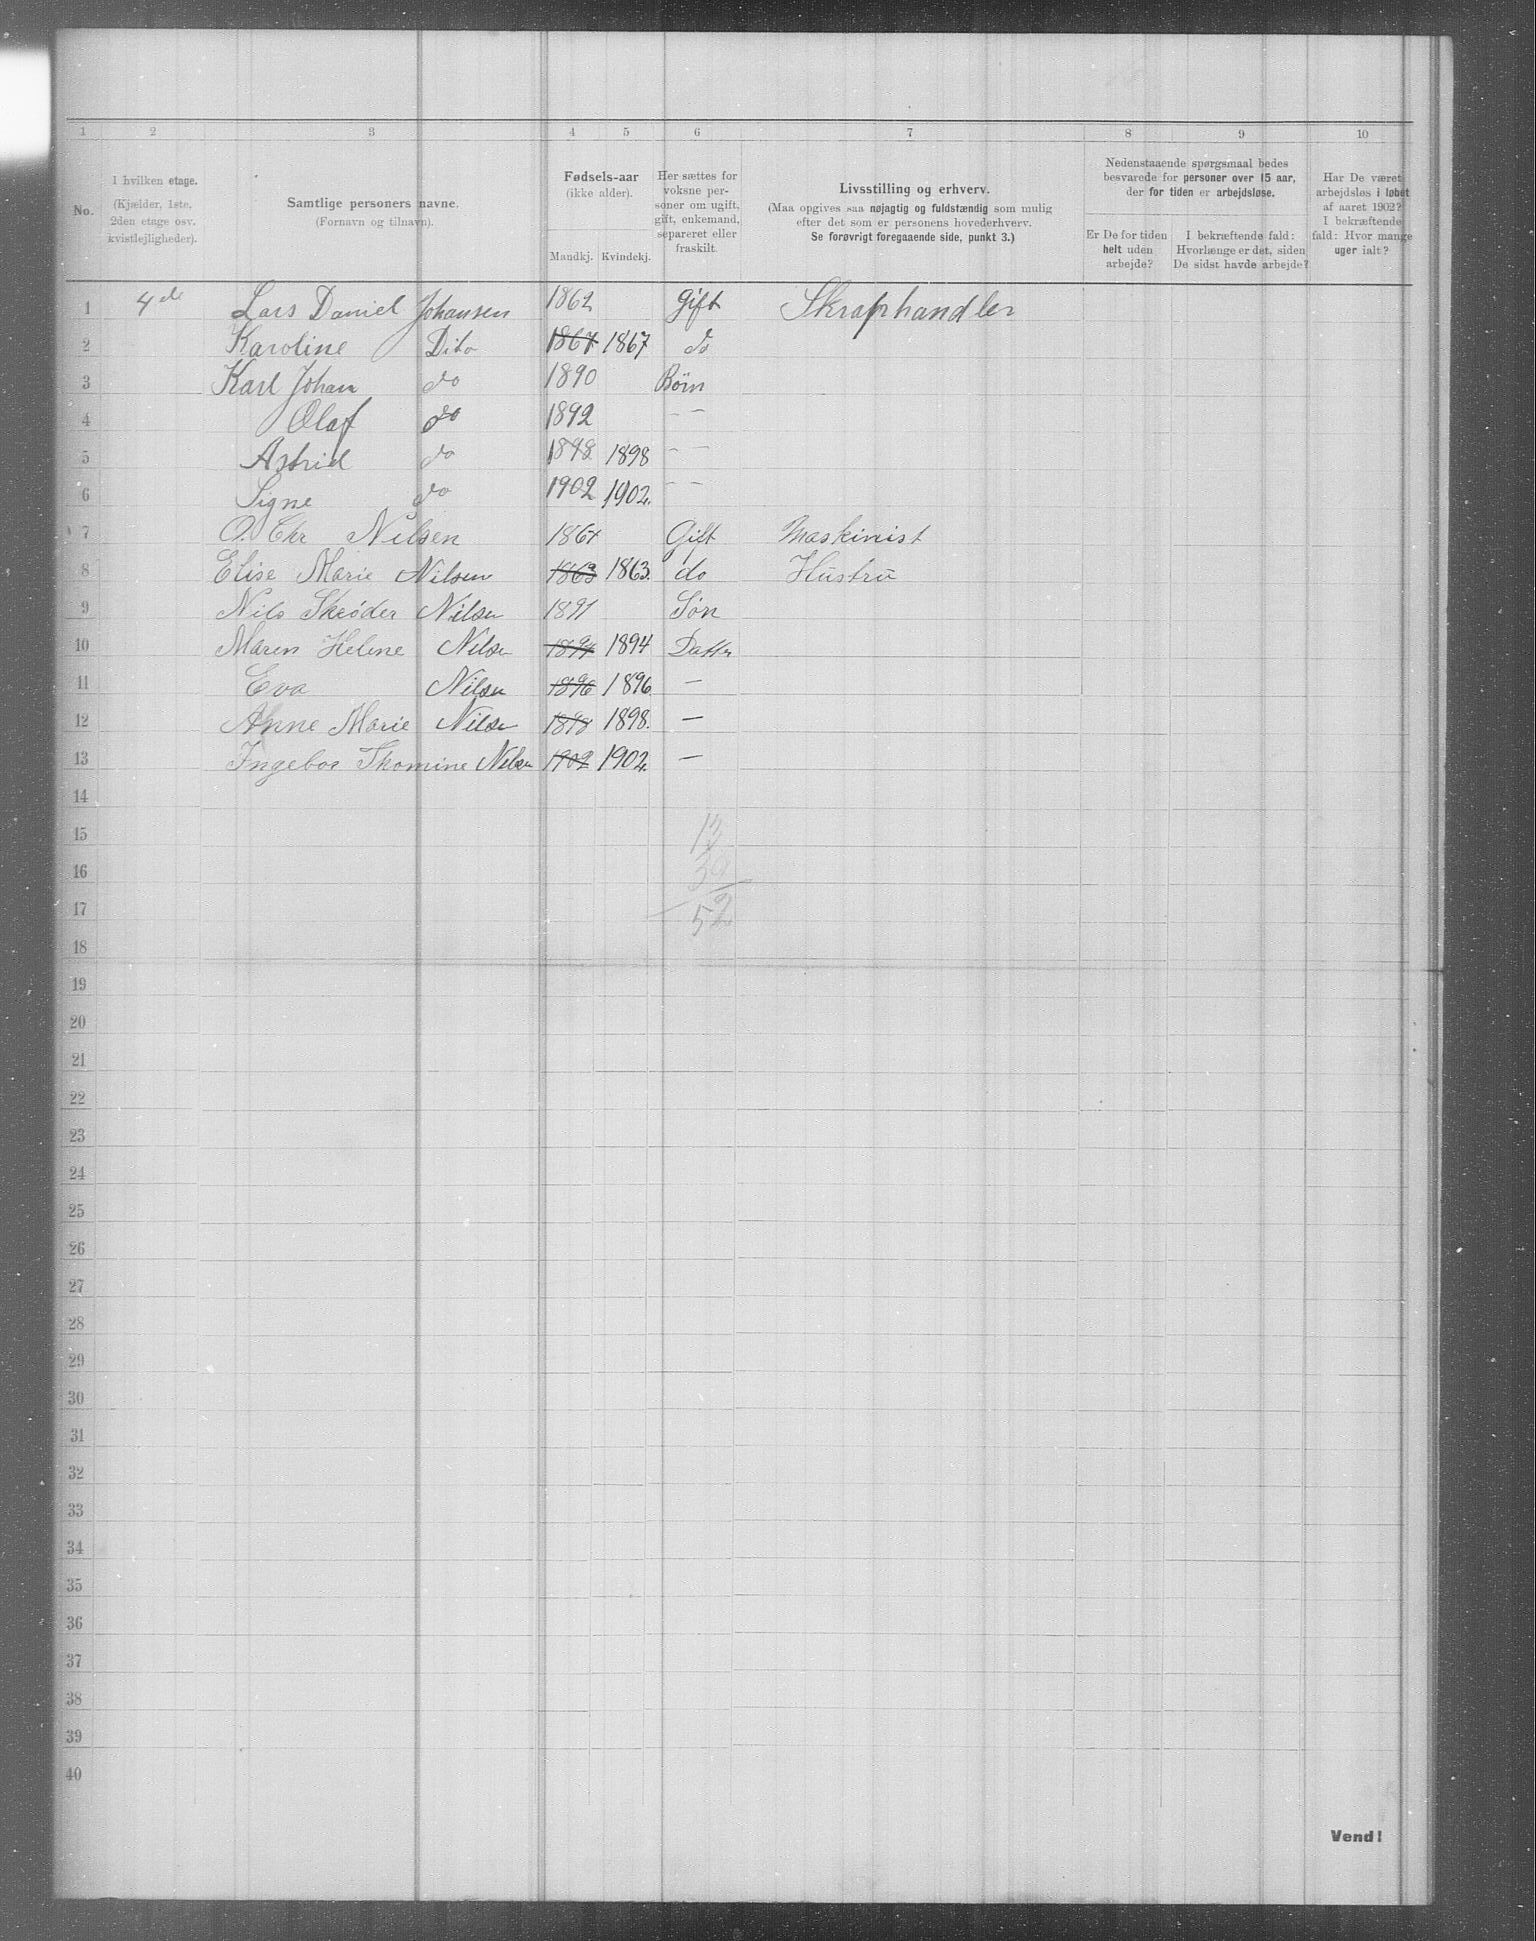 1 2 3 4 5 6 7 8 9 10
No.
I hvilken etage.
(Kjælder, 1ste,
2den etage osv.
kvistlejligheder).
Samtlige personers navne.
(Fornavn og tilnavn).
Fødsels-aar
(ikke alder).
Mandkj. Kvindekj.
Her sættes for
voksne per-
soner om ugift,
gift, enkemand,
separeret eller
fraskilt.
Livsstilling og erhverv.
(Maa opgives saa nøjagtig og fuldstændig som mulig
efter det som er personens hovederhverv.
Se forøvrigt foregaaende side, punkt 3.)
Nedenstaaende spørgsmaal bedes
besvarede for personer over 15 aar,
der for tiden er arbejdsløse.
Er De for tiden
helt uden
arbejde?
I bekræftende fald:
Hvorlænge er det, siden
De sidst havde arbejde?
Har De været
arbejdsløs i løbet
af aaret 1902?
I bekræftende
fald: Hvor mange
uger ialt?
1 4de Lars Daniel Johansen 1862 Gift Skraphandler
2 Karoline Dito 1867 1867 do
3 Karl Johan do 1890 Børn
4 Olaf do 1892 – –
5 Astrid do 1898 1898 – –
6 Signe do 1902 1902. – –
7 O. Chr Nilsen 1864 Gift Maskinist
8 Elise Marie Nilsen 1863 1863. do Hustru
9 Nils Skrøder Nilsen 1891 Søn
10 Maren Helene Nilsen 1894 1894 Datter
11 Eva Nilsen 1896 1896 –
12 Anne Marie Nilsen 1898 1898. –
13 Ingebor Thomine Nilsen 1902 1902. –
14
15 13
16 39
17 52
18
19
20
21
22
23
24
25
26
27
28
29
30
31
32
33
34
35
36
37
38
39
40
Vend!